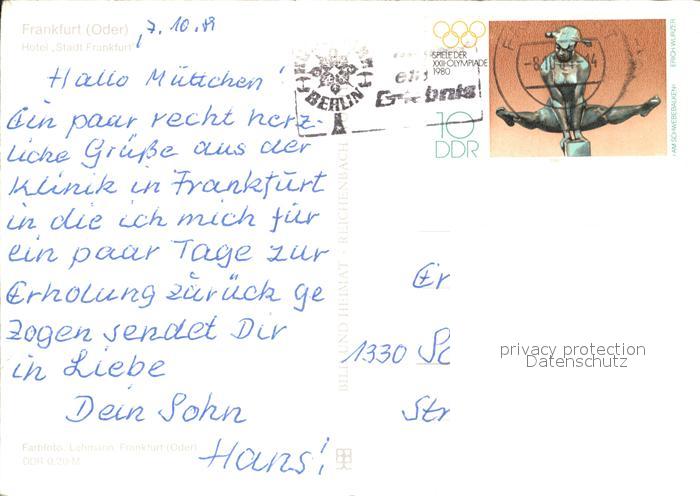 Frankfurt (Oder)
Hotel „Stadt Frankfurt"
7. 10. 81
Hallo Muttchen!
Ein paar recht herz-
liche Grüße aus der
Klinik in Frankfurt
in die ich mich für
ein paar Tage zur
Erholung zurück ge
zogen sendet Dir
in Liebe
Dein Sohn
Hans!
Farbfoto. Lehmann, Frankfurt (Oder)
DDR 0,20 M
BILD UND HEIMAT · REICHENBACH
BERLIN
ein
Erlebnis
SPIELE DER
XXII.OLYMPIADE
1980
10
DDR
AM SCHWEBEBALKEN
ERICH WURZER
1330
Str
privacy protection
Datenschutz